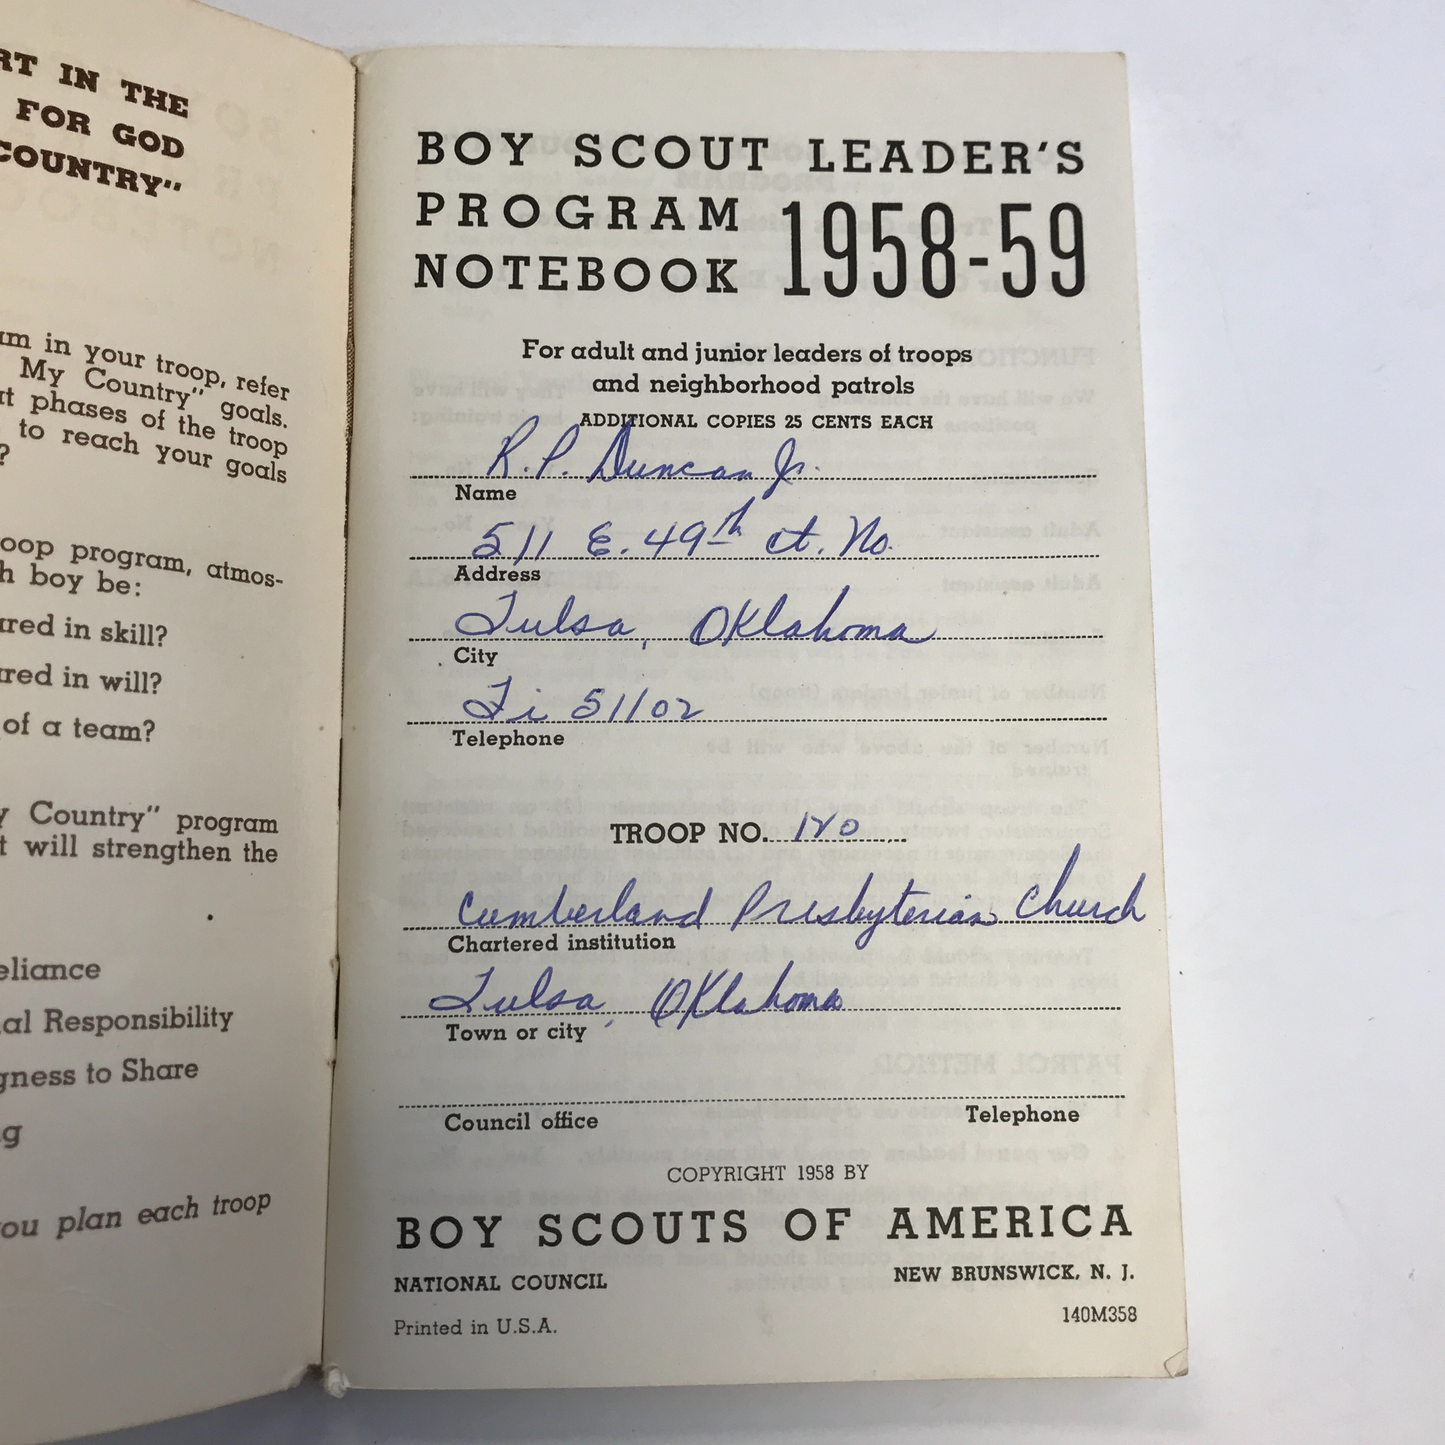 RT IN THE
FOR GOD
COUNTRY"
am in your troop, refer
My Country" goals.
at phases of the troop
to reach your goals
?
oop program, atmos-
h boy be:
ared in skill?
red in will?
of a team?
y Country" program
t will strengthen the
eliance
al Responsibility
gness to Share
g
ou plan each troop
BOY SCOUT LEADER'S
PROGRAM
NOTEBOOK 1958-59
For adult and junior leaders of troops
and neighborhood patrols
ADDITIONAL COPIES 25 CENTS EACH
R. P. Duncan Jr.
Name
511 E. 49th ct. No.
Address
Tulsa, Oklahoma
City
Di 51102
Telephone
TROOP NO. 120
Cumberland Presbyterian Church
Chartered institution
Tulsa, Oklahoma
Town or city
Council office Telephone
COPYRIGHT 1958 BY
BOY SCOUTS OF AMERICA
NATIONAL COUNCIL NEW BRUNSWICK, N. J.
Printed in U.S.A. 140M358